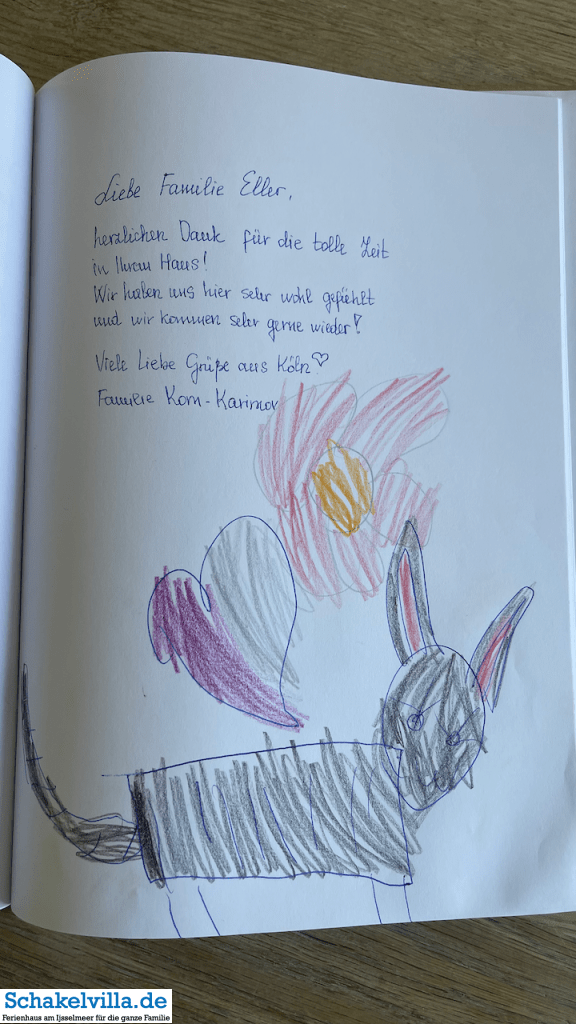 Liebe Familie Eller,
herzlichen Dank für die tolle Zeit
in Ihrem Haus!
Wir haben uns hier sehr wohl gefühlt
und wir kommen sehr gerne wieder!
Viele Liebe Grüße aus Köln
Familie Korn-Karimov
Schakelvilla.de
Ferienhaus am Ijsselmeer für die ganze Familie